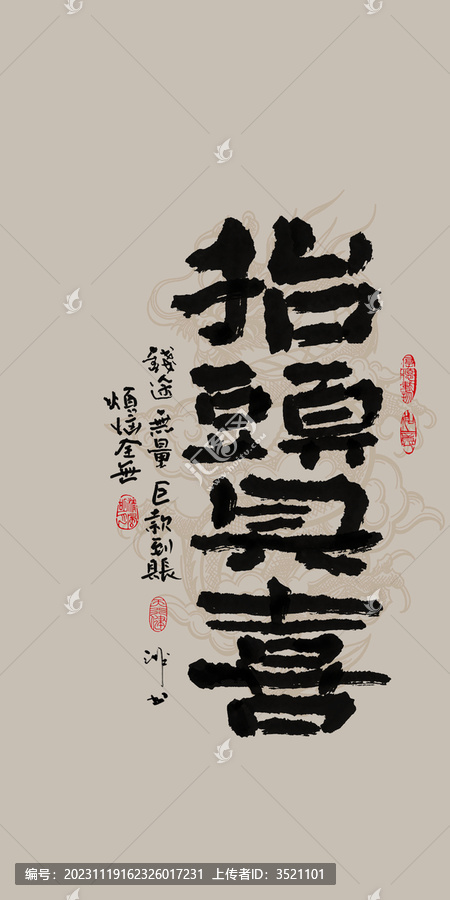 抬頭見喜
錢途無量巨款到賬
煩惱全無
编号：20231119162326017231 上传者ID：3521101